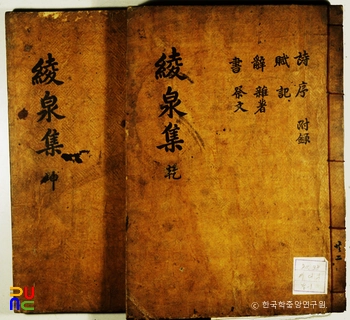 詩 序 附錄
賦 記
辭 雜著
書 祭文
綾泉集 乾
綾泉集 坤
共二
ⓒ 한국학중앙연구원